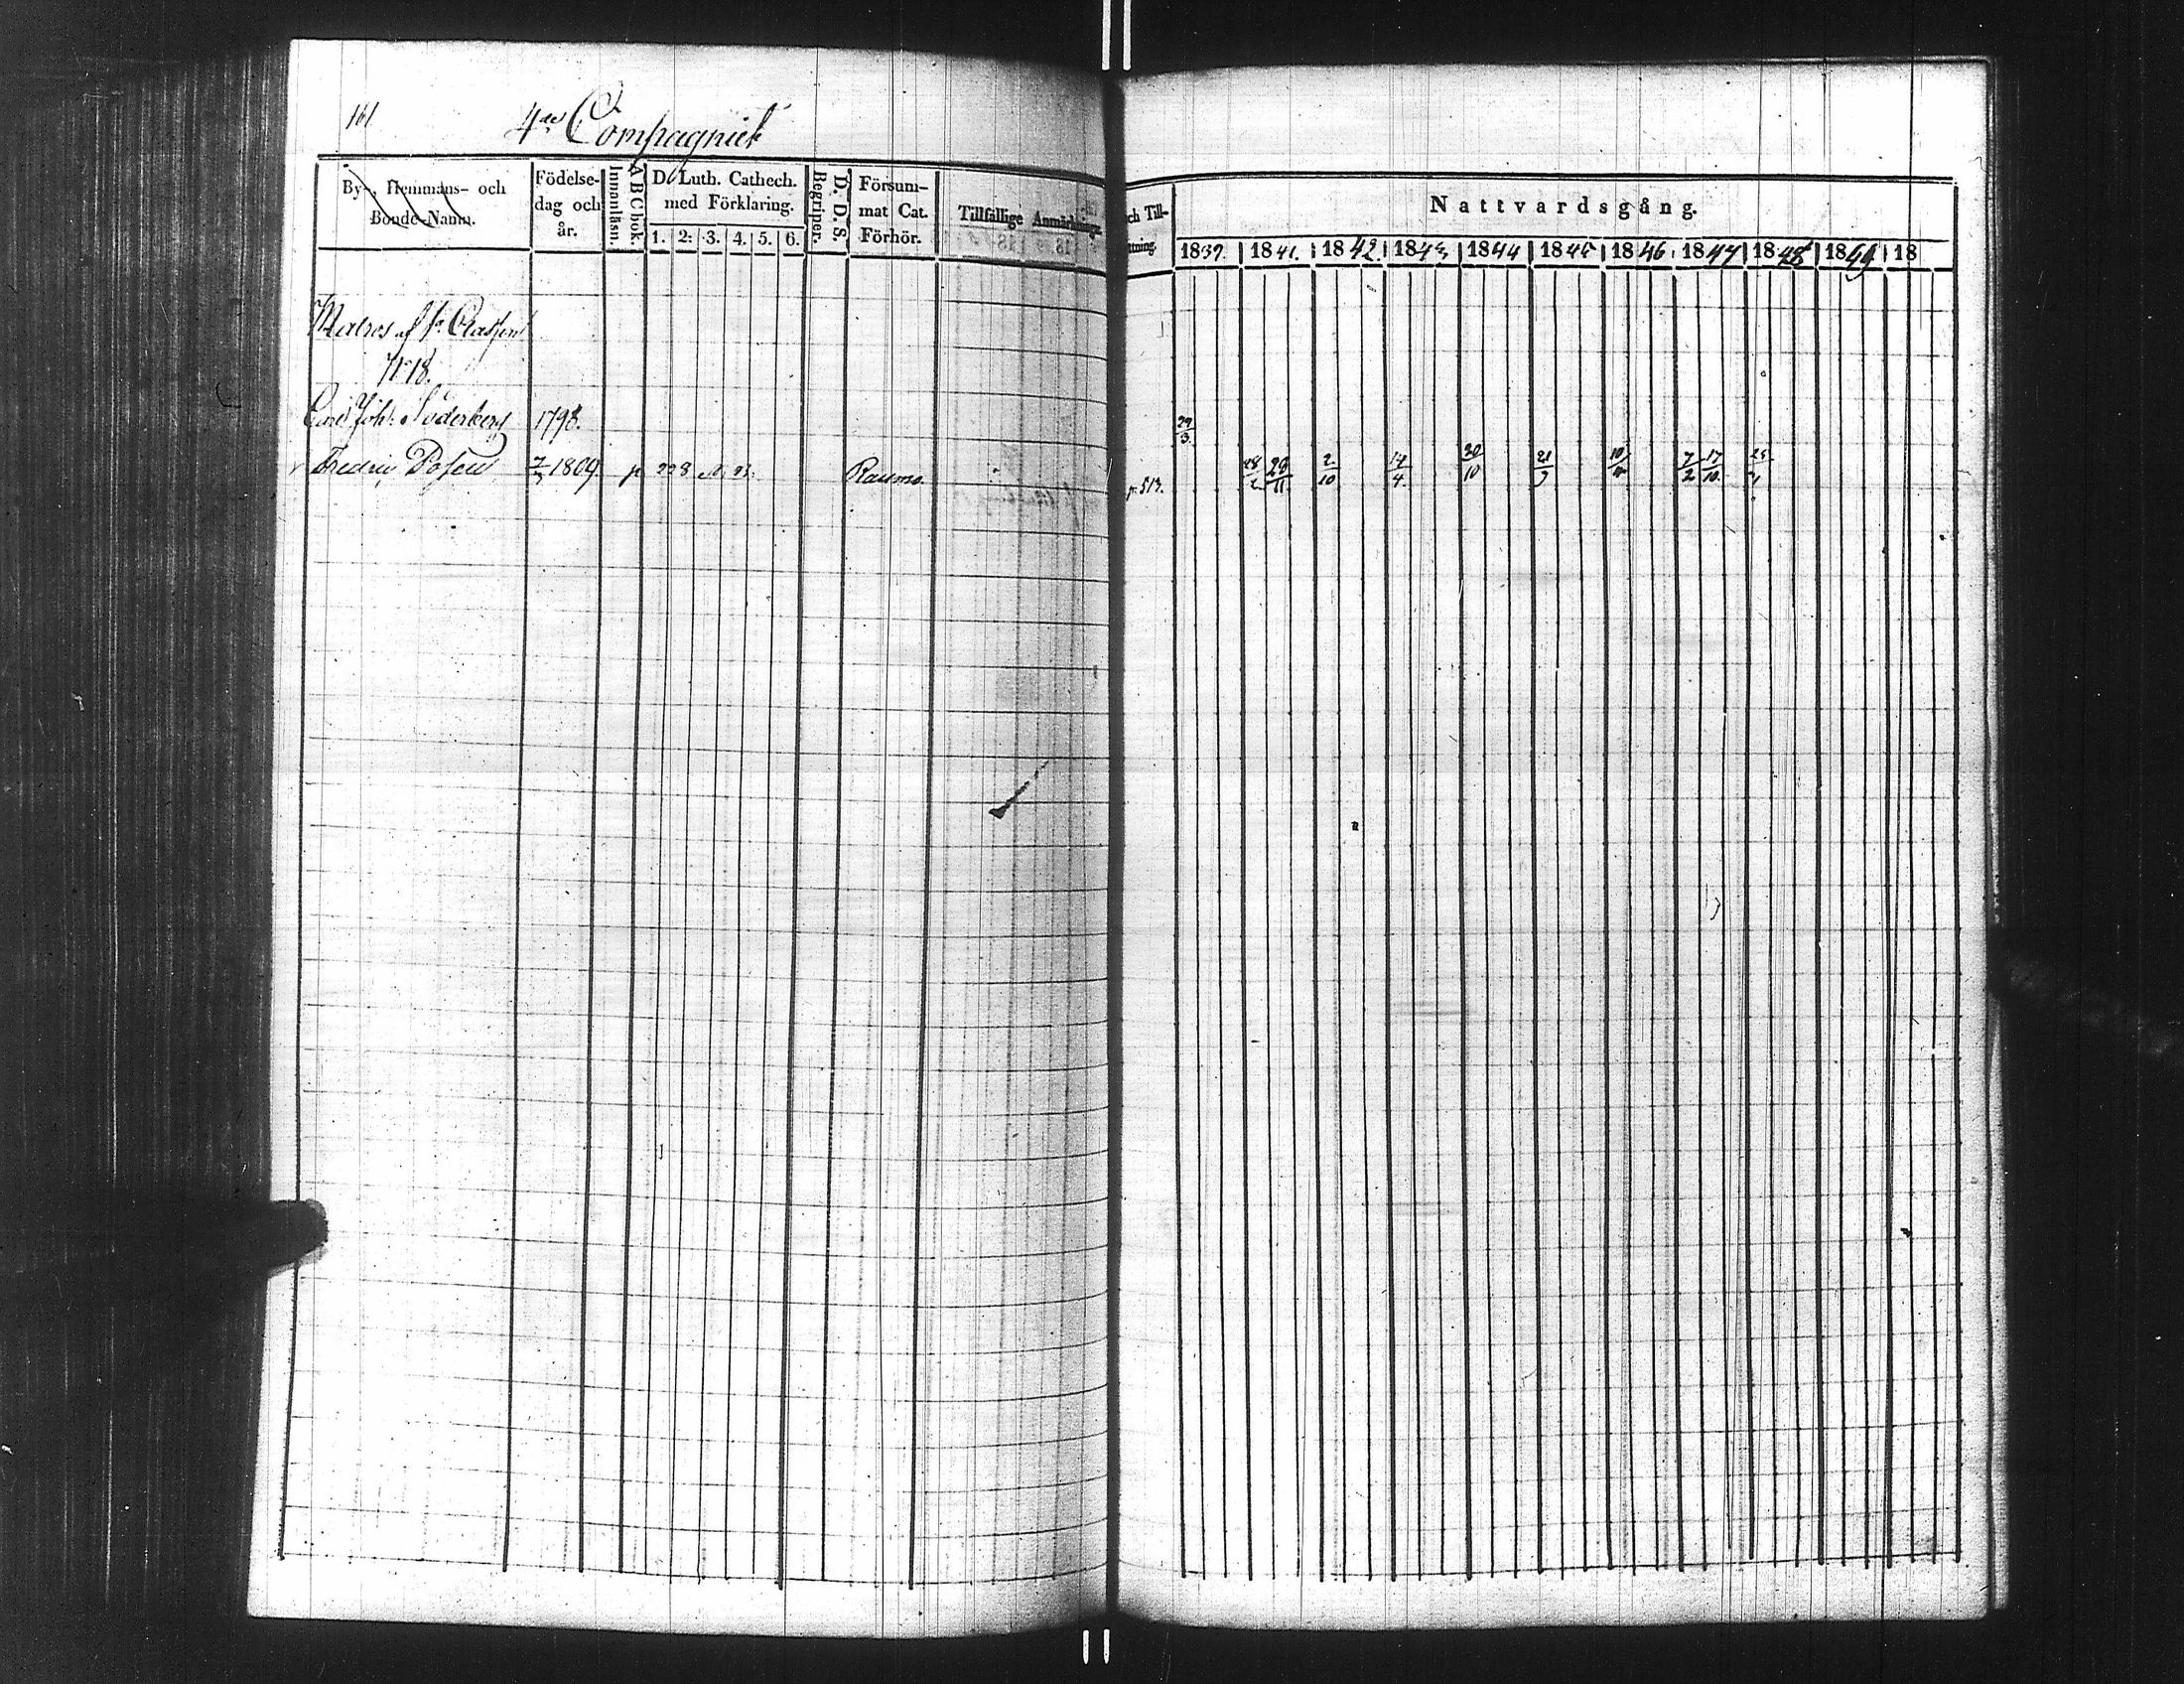 161
4de Compagniet
By-, Hemmans- och Bonde-Namn.
Födelse-dag och år.
Innanläsn.
A B C bok.
D. Luth. Cathech. med Förklaring.
1. 2. 3. 4. 5. 6.
Begriper.
D. D. S.
Försum-mat Cat. Förhör.
Tillfällige Anmärkningar
och Till-
Nattvardsgång.
1839 1841. 1842. 1843 1844 1845 1846 1847 1848 1849 18
Matros af 1a Classen
No 18.
Carl Joh. Söderberg 1798. 29/3
Fredric Posen 1809. p. 228 Raumo p. 513. 28/2 28/11 2/10 14/4 20/10 21/9 7/2 17/10